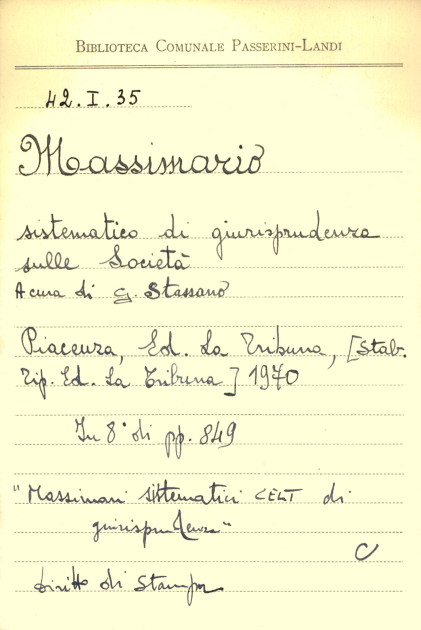 BIBLIOTECA COMUNALE PASSERINI-LANDI
42.I.35
Massimario
sistematico di giurisprudenza
sulle Società
A cura di G. Stassano
Piacenza, Ed. La Tribuna, [Stab.
Tip. Ed. La Tribuna] 1970
In 8° di pp. 849
"Massimari sistematici CELT di
giurisprudenza"
C
Diritto di Stampa